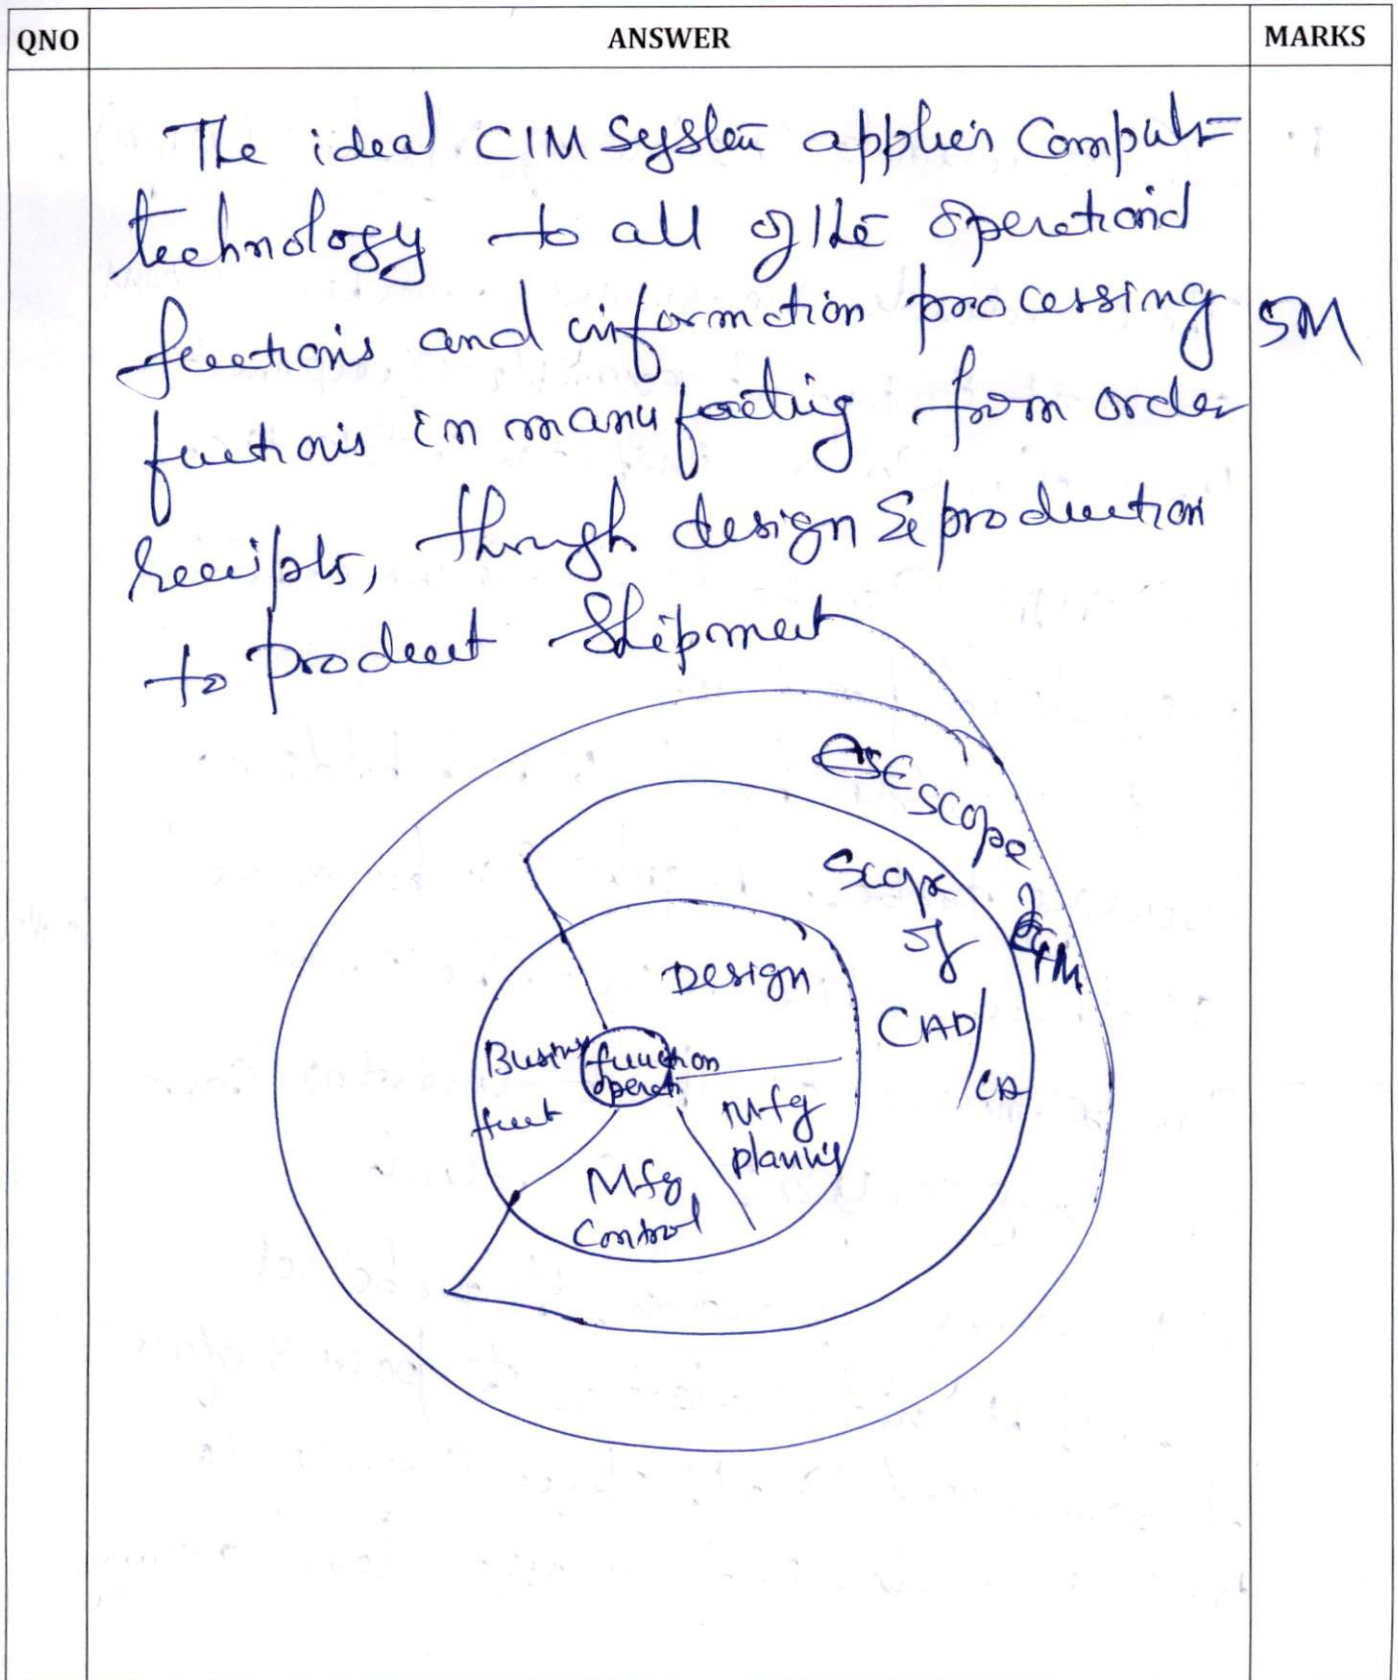 QNO ANSWER MARKS
The ideal CIM system applies Computer
technology to all of the operational
functions and information processing
5M
functions in manufacturing from order
receipts, through design & production
to product Shipment
SCOPE
of CIM
Scope
of
CAD/
CA
Design
Business
funct
function
operati
Mfg
planning
Mfg
Control